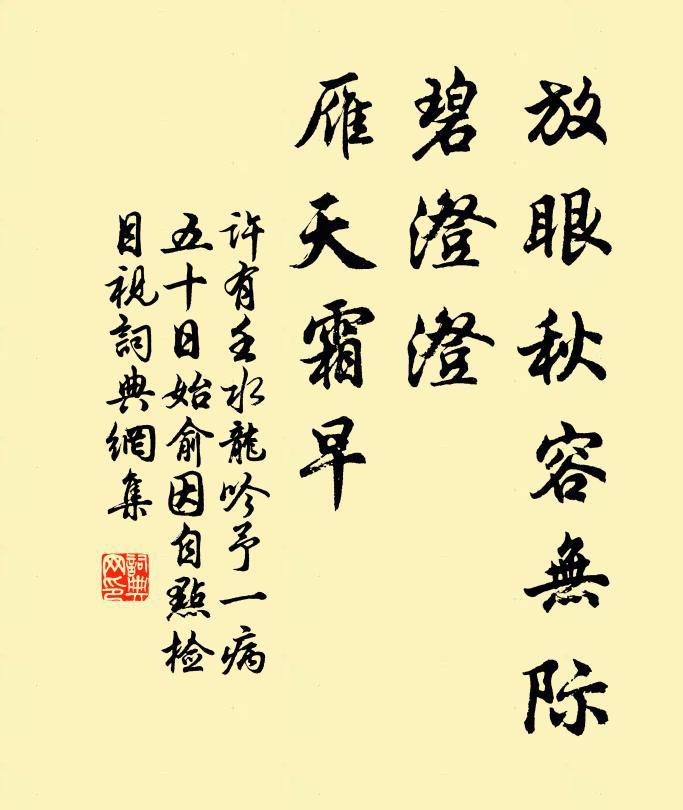 放眼秋容無际
碧澄澄
雁天霜早
许有壬水龍吟予一病
五十日始俞因自點检
目視詞典網集
詞典网印